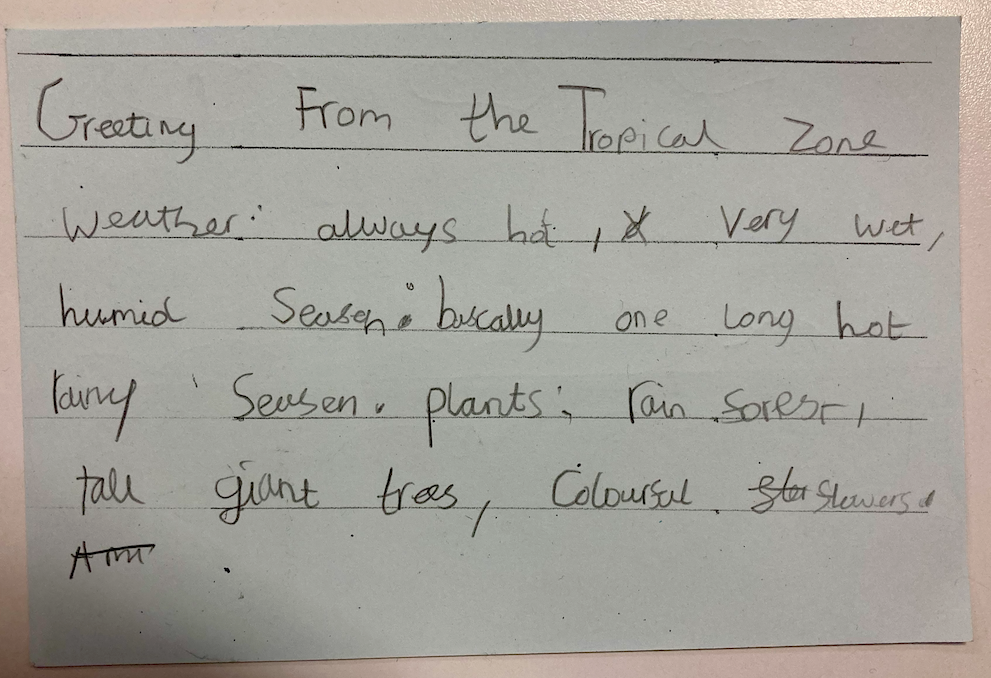 Greeting From the Tropical Zone
Weather: always hot, very wet,
humid Seasen: bascally one long hot
rainy Seasen. plants: rain forest,
tall giant trees, Colourful flowers.